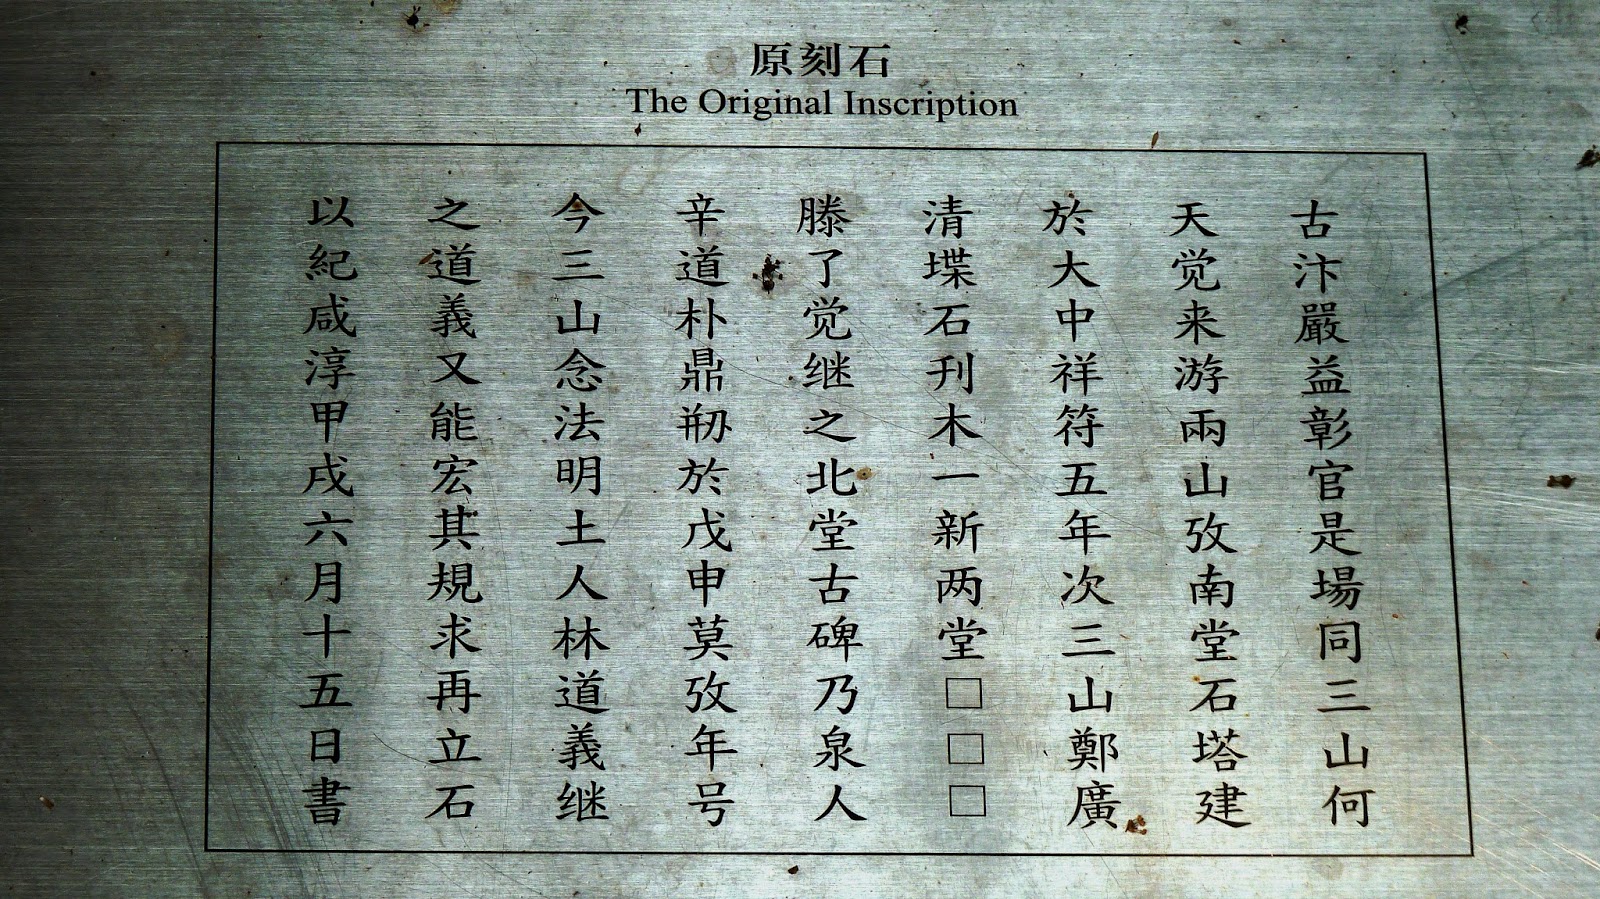 原刻石
The Original Inscription
古汴嚴益彰官是場同三山何
天觉来游兩山攷南堂石塔建
於大中祥符五年次三山鄭廣
清堞石刊木一新两堂□□□
滕了觉继之北堂古碑乃泉人
辛道朴鼎剏於戊申莫攷年号
今三山念法明土人林道義继
之道義又能宏其規求再立石
以紀咸淳甲戌六月十五日書